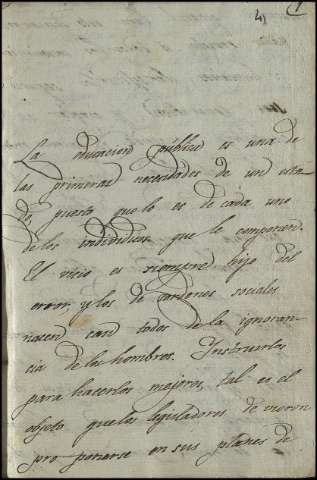 La educacion pública es una de
las primeras necesidades de un esta-
do, puesto que lo es de cada uno
de los individuos que le componen.
El vicio es siempre hijo del
error, y los desordenes sociales
nacen casi todos de la ignoran-
cia de los hombres. Instruirlos
para hacerlos mejores, tal es el
objeto que los legisladores deven
proponerse en sus planes de